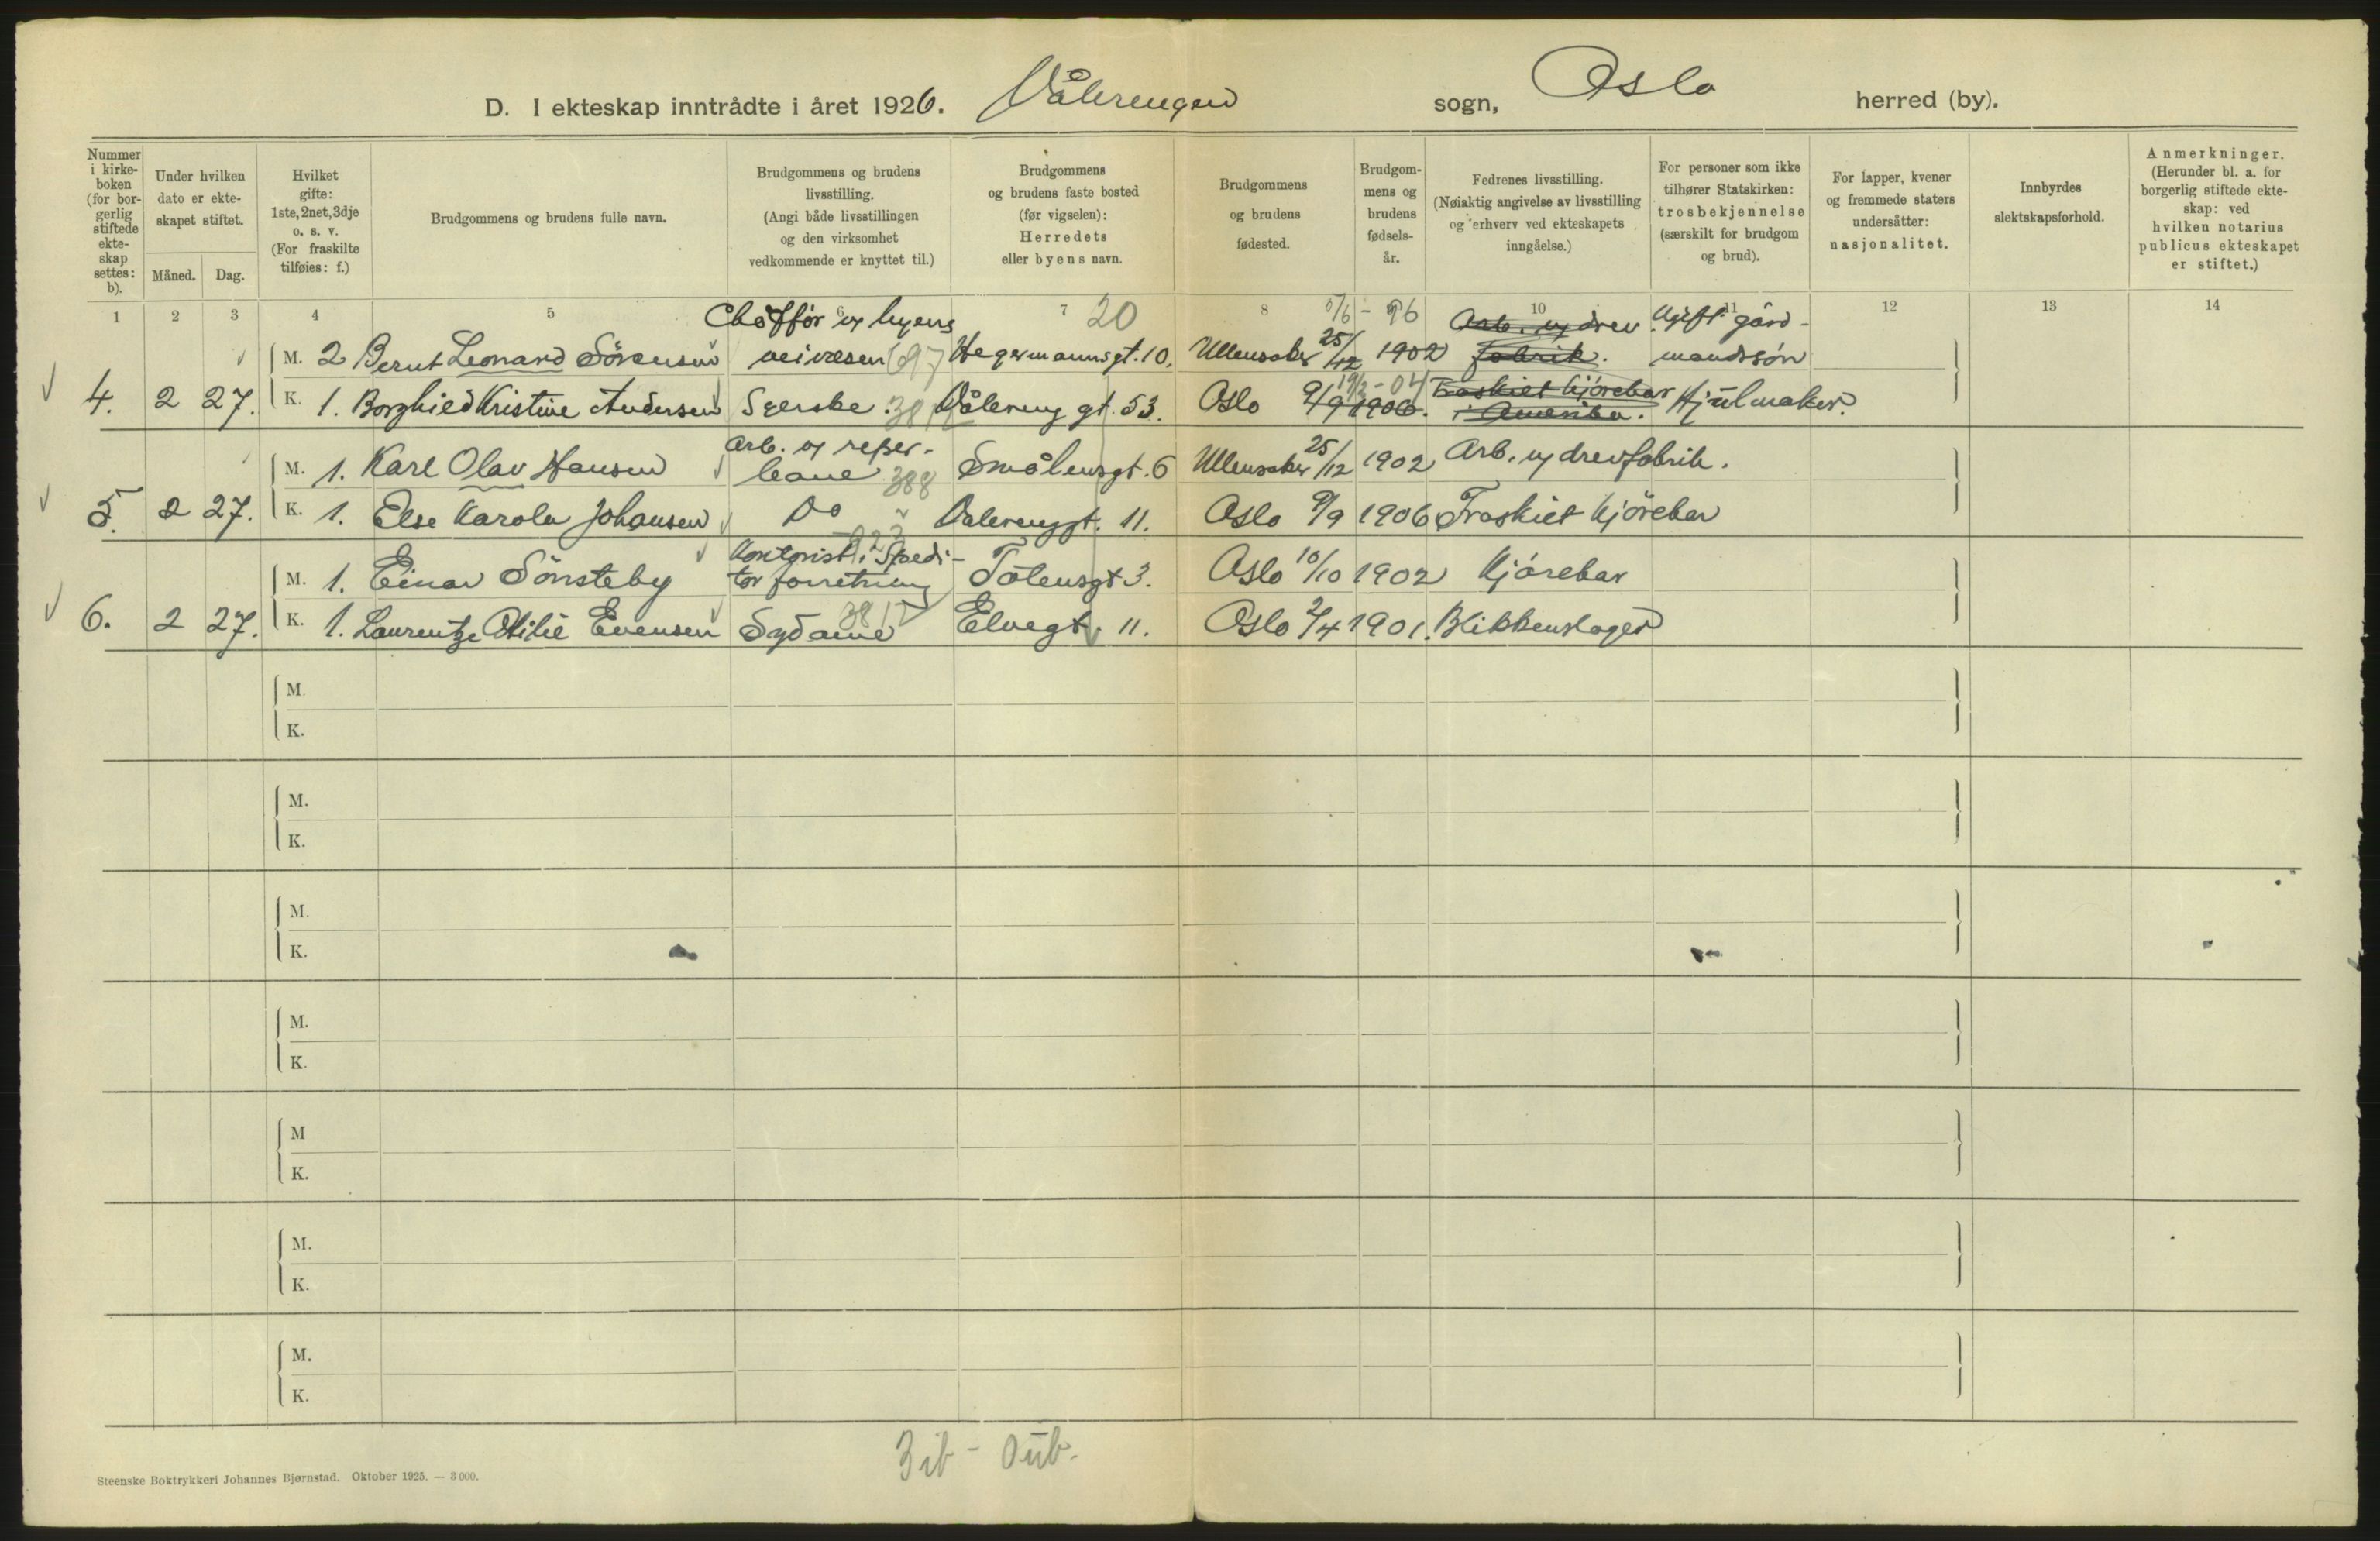 D. I ekteskap inntrådte i året 1926. Vålerengen sogn, Oslo herred (by).
Nummer i kirke-boken (for bor-gerlig stiftede ekte-skap settes: b).
Under hvilken dato er ekte-skapet stiftet.
Måned. Dag.
Hvilket gifte: 1ste, 2net, 3dje o. s. v. (For fraskilte tilføies: f.)
Brudgommens og brudens fulle navn.
Brudgommens og brudens livsstilling. (Angi både livsstillingen og den virksomhet vedkommende er knyttet til.)
Brudgommens og brudens faste bosted (før vigselen): Herredets eller byens navn.
Brudgommens og brudens fødested.
Brudgom-mens og brudens fødsels-år.
Fedrenes livsstilling. (Nøiaktig angivelse av livsstilling og erhverv ved ekteskapets inngåelse.)
For personer som ikke tilhører Statskirken: trosbekjennelse (særskilt for brudgom og brud).
For lapper, kvener og fremmede staters undersåtter: nasjonalitet.
Innbyrdes slektskapsforhold.
Anmerkninger. (Herunder bl. a. for borgerlig stiftede ekte-skap: ved hvilken notarius publicus ekteskapet er stiftet.)
1 2 3 4 5 6 7 8 10 11 12 13 14
20
Chofför v byens 5/6 - 96 Arb. v drev Ugift gård-
M. 2 Bernt Leonard Sörensen veivæsen 197 Hegermannsgt. 10. Ullensaker 25/12 1902 fabrik. mandssön
19/2 - 04 Fraskiet kjörekar
4. 2 27. K. 1. Borghild Kristine Andersen Syerske. Vålereng gt. 53. Oslo 9/9 1906. i Amerika. Hjulmaker.
Arb. v reper-
M. 1. Karl Olav Hansen bane 388 Smålensgt. 6 Ullensaker 25/12 1902 Arb. v drevfabrik.
5. 2 27. K. 1. Else Karola Johansen Do Valerenggt. 11. Oslo 9/9 1906 Fraskiet kjörekar
Kontorist i Spedi-
M. 1. Einar Sönsteby tör forretning Tölensgt 3. Oslo 10/10 1902 Kjörekar
6. 2 27. K. 1. Laurentze Otilie Evensen Sydame 381 Elvegt. 11. Oslo 2/4 1901. Blikkenslager
M.
K.
M.
K.
M.
K.
M.
K.
M
K.
M.
K.
M.
K.
3 ib - 0 ub.
Steenske Boktrykkeri Johannes Bjørnstad. Oktober 1925. — 3 000.